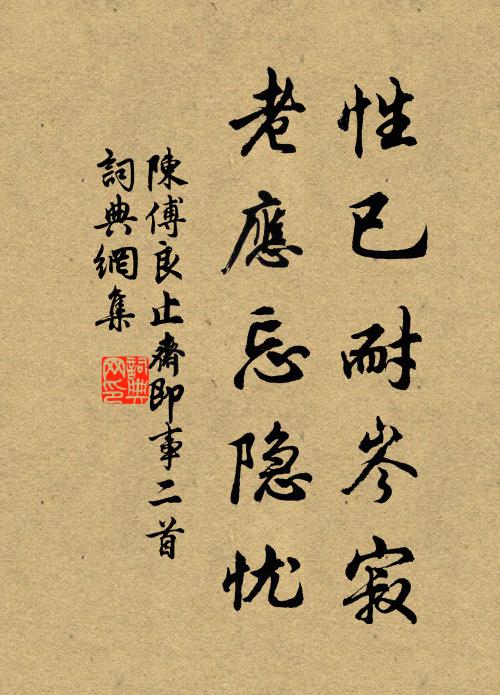 性已耐岑寂
老應忘隐忧
陳傅良止齋即事二首
詞典網集
詞典网印